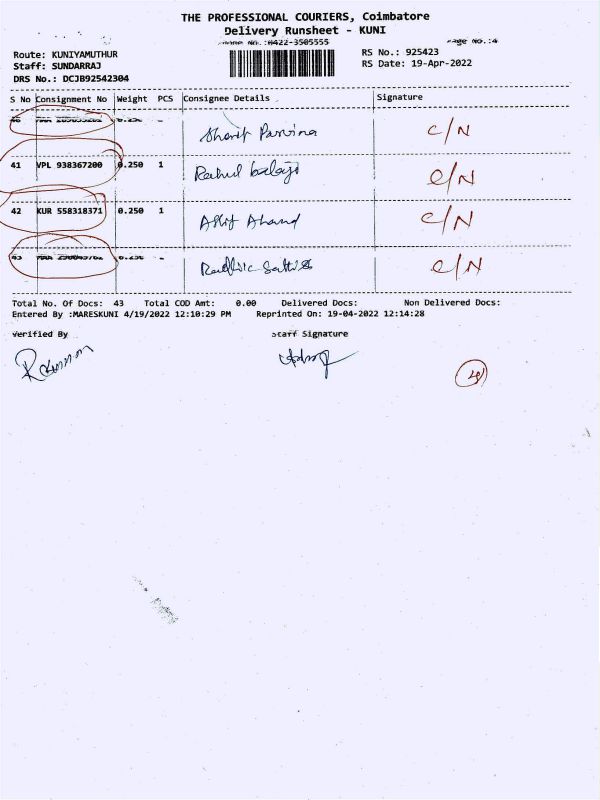 THE PROFESSIONAL COURIERS, Coimbatore
Delivery Runsheet - KUNI
Phone No.:0422-3505555
Page No.:4
Route: KUNIYAMUTHUR
RS No.: 925423
Staff: SUNDARRAJ
RS Date: 19-Apr-2022
DRS No.: DCJB92542304
S No Consignment No Weight PCS Consignee Details Signature
40 0.250 C/N
41 VPL 938367200 0.250 1 Rahul balaji C/N
42 KUR 558318371 0.250 1 C/N
43 0.250 C/N
Total No. Of Docs: 43 Total COD Amt: 0.00 Delivered Docs: Non Delivered Docs:
Entered By :MARESKUNI 4/19/2022 12:10:29 PM Reprinted On: 19-04-2022 12:14:28
Verified By Staff Signature